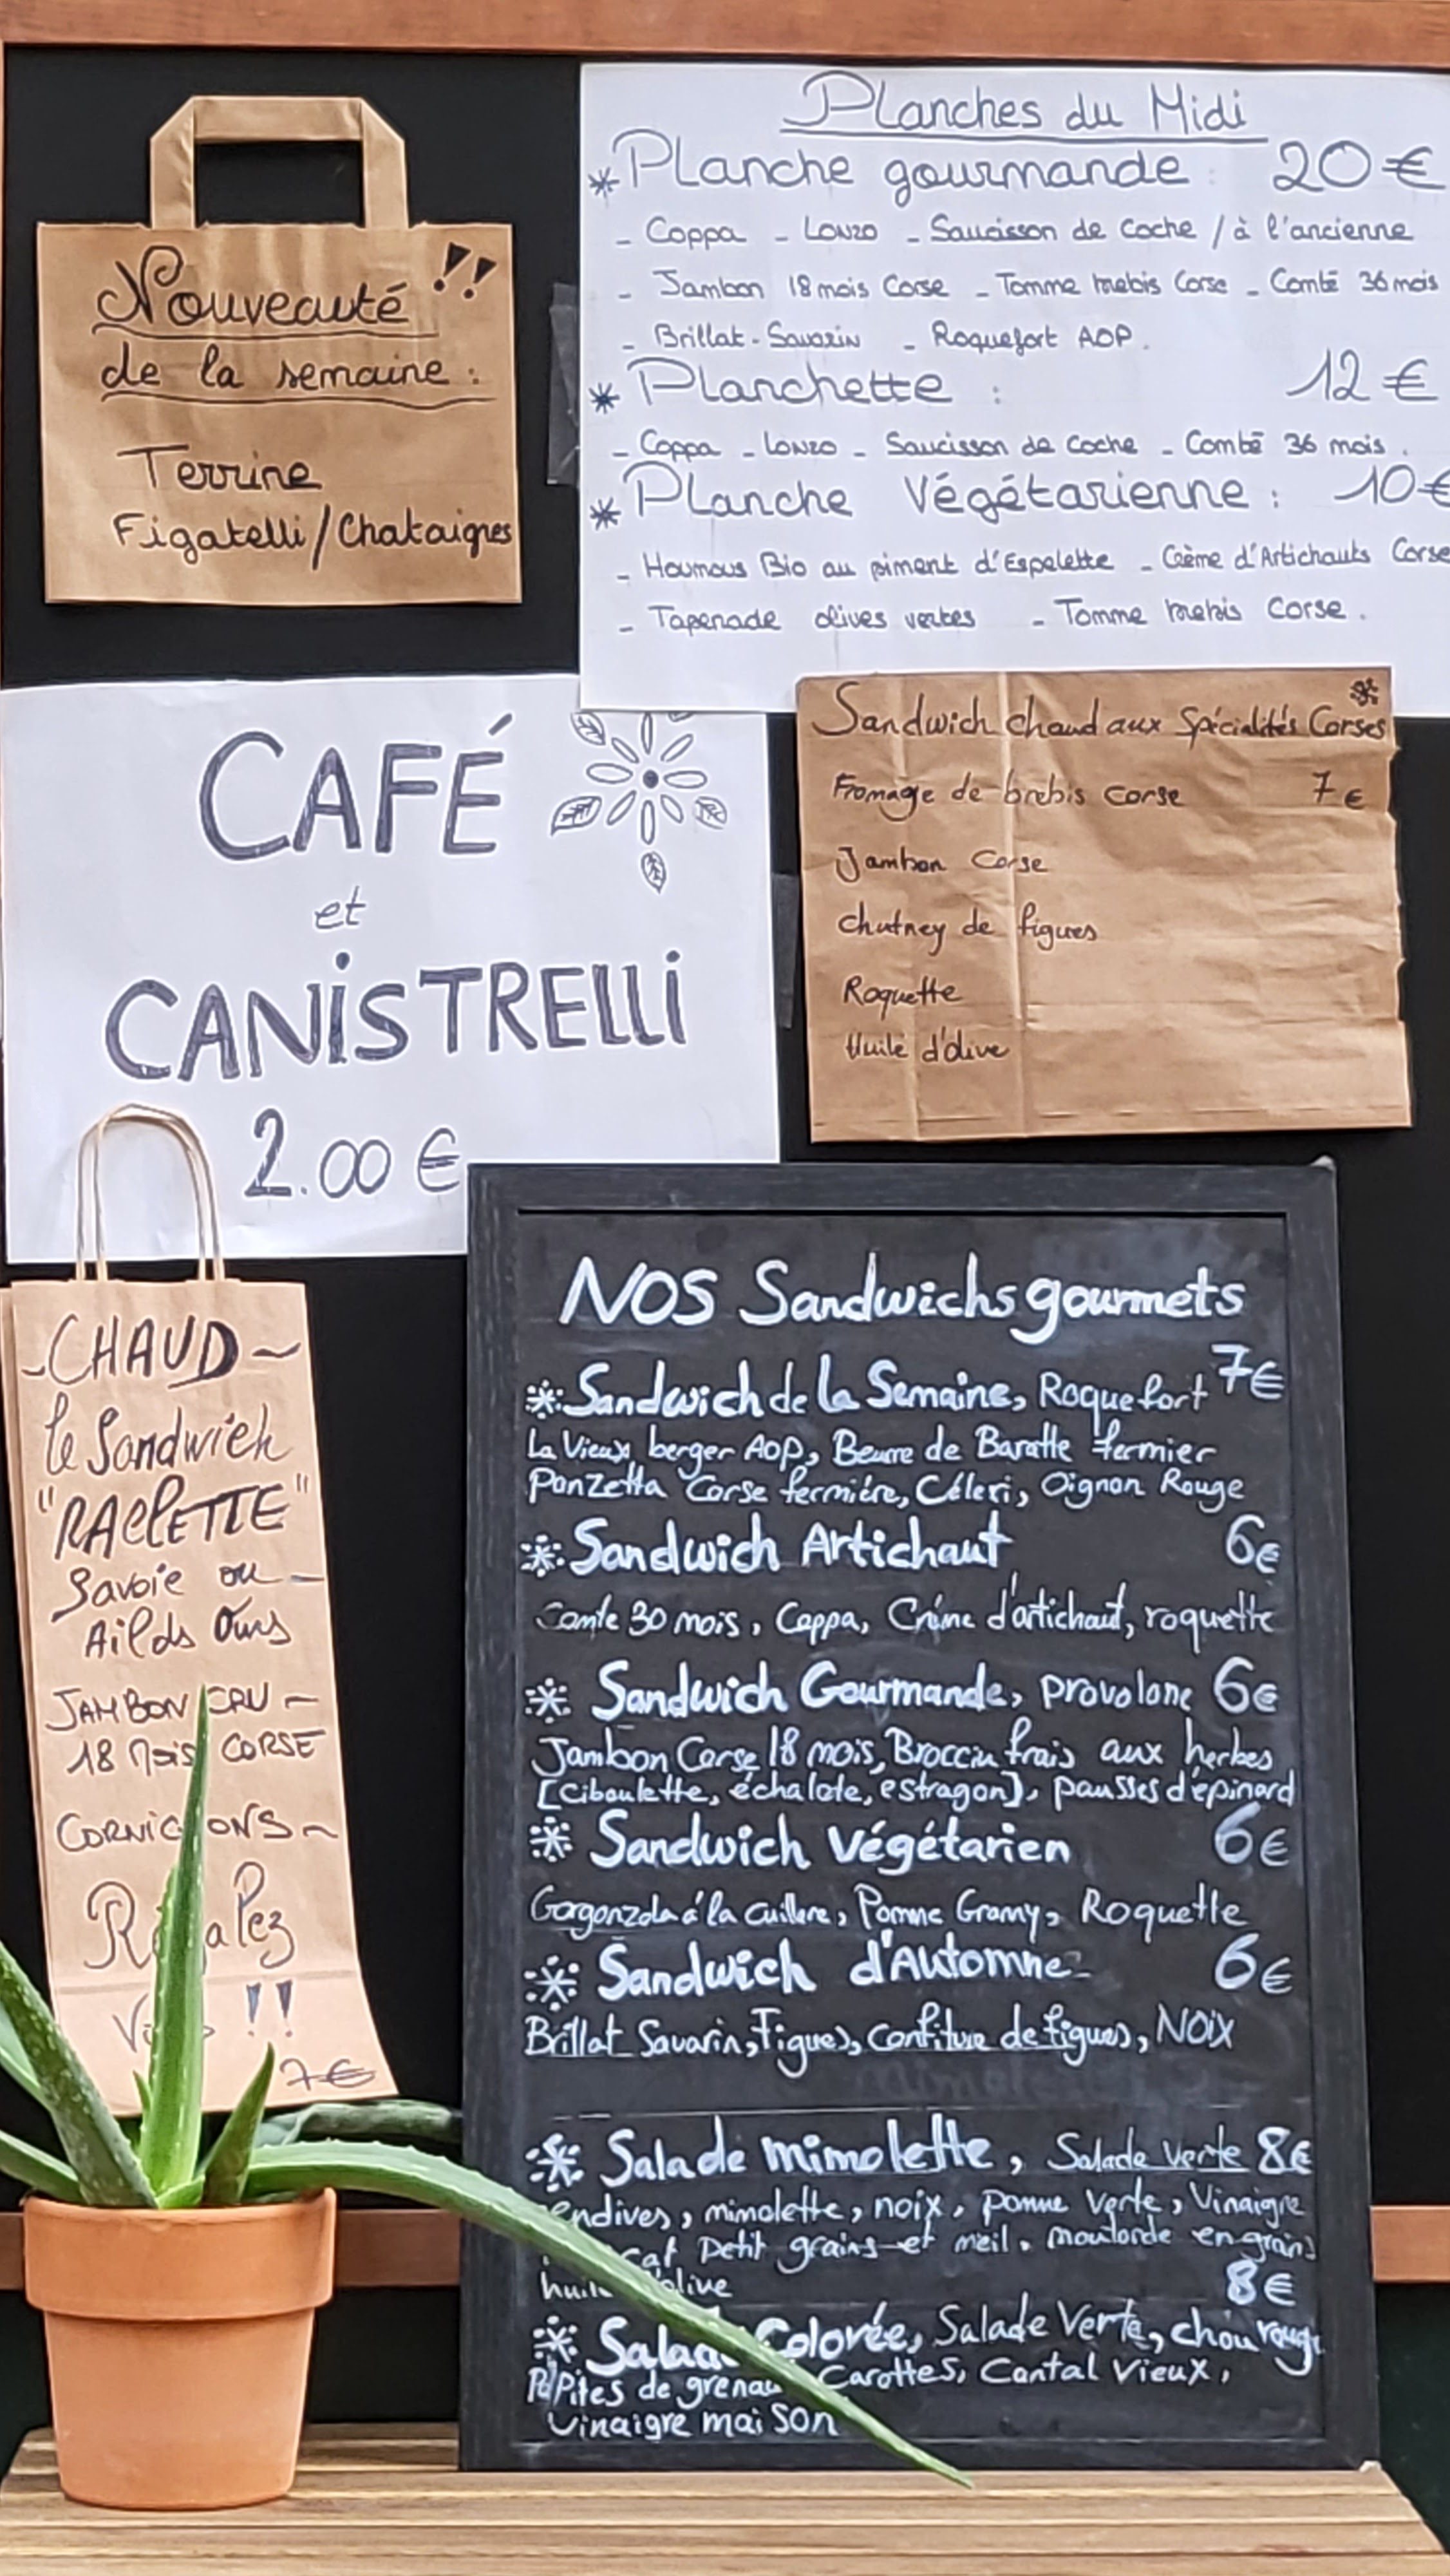 Nouveauté !!
de la semaine :
Terrine
Figatelli/Chataignes
Planches du Midi
* Planche gourmande : 20 €
- Coppa - Lonzo - Saucisson de Coche / à l'ancienne
- Jambon 18 mois Corse - Tomme brebis Corse - Comté 36 mois
- Brillat-Savarin - Roquefort AOP.
* Planchette : 12 €
- Coppa - Lonzo - Saucisson de Coche - Comté 36 mois.
* Planche Végétarienne : 10 €
- Houmous Bio au piment d'Espelette - Crème d'Artichauts Corse
- Tapenade olives vertes - Tomme brebis Corse.
CAFÉ
et
CANISTRELLI
2.00 €
Sandwich chaud aux Spécialités Corses
Fromage de brebis corse 7 €
Jambon Corse
Chutney de figues
Roquette
Huile d'olive
-CHAUD-
le Sandwich
"RAClETTE"
Savoie ou -
Ail ds Ours
JAMBON CRU -
18 Mois CORSE
Régalez
!!
7€
NOS Sandwichs gourmets
* Sandwich de la Semaine, Roquefort 7€
La Vieux berger AOP, Beurre de Baratte fermier
Panzetta Corse fermiére, Céleri, Oignon Rouge
* Sandwich Artichaut 6€
Comte 30 mois, Coppa, Créme d'artichaut, roquette
* Sandwich Gourmande, provolone 6€
Jambon Corse 18 mois, Brocciu frais aux herbes
[Ciboulette, échalote, estragon], pousses d'épinard
* Sandwich végétarien 6€
Gorgonzola á la cuillere, Pomme Granny, Roquette
* Sandwich d'Automne 6€
Brillat Savarin, Figues, confiture de figues, NOIX
* Salade mimolette, Salade verte 8€
endives, mimolette, noix, pomme verte, Vinaigre
petit grains et meil. moutorde en grains
huile d'olive 8€
* Salade Colorée, Salade Verte, chou rouge
Pépites de Carottes, Cantal Vieux,
Vinaigre maison